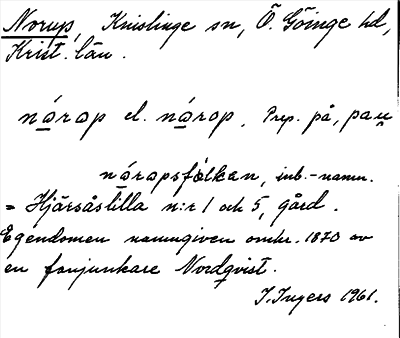 Norup, Knislinge sn, Ö. Göinge hd,
Krist. län.
nórap el. nórop. Prep. på, pau
nórapsfálkan, inb.-namn.
= Hjärsåslilla n:r 1 och 5, gård.
Egendomen namngiven omkr. 1870 av
en fanjunkare Nordqvist.
I. Ingers 1961.